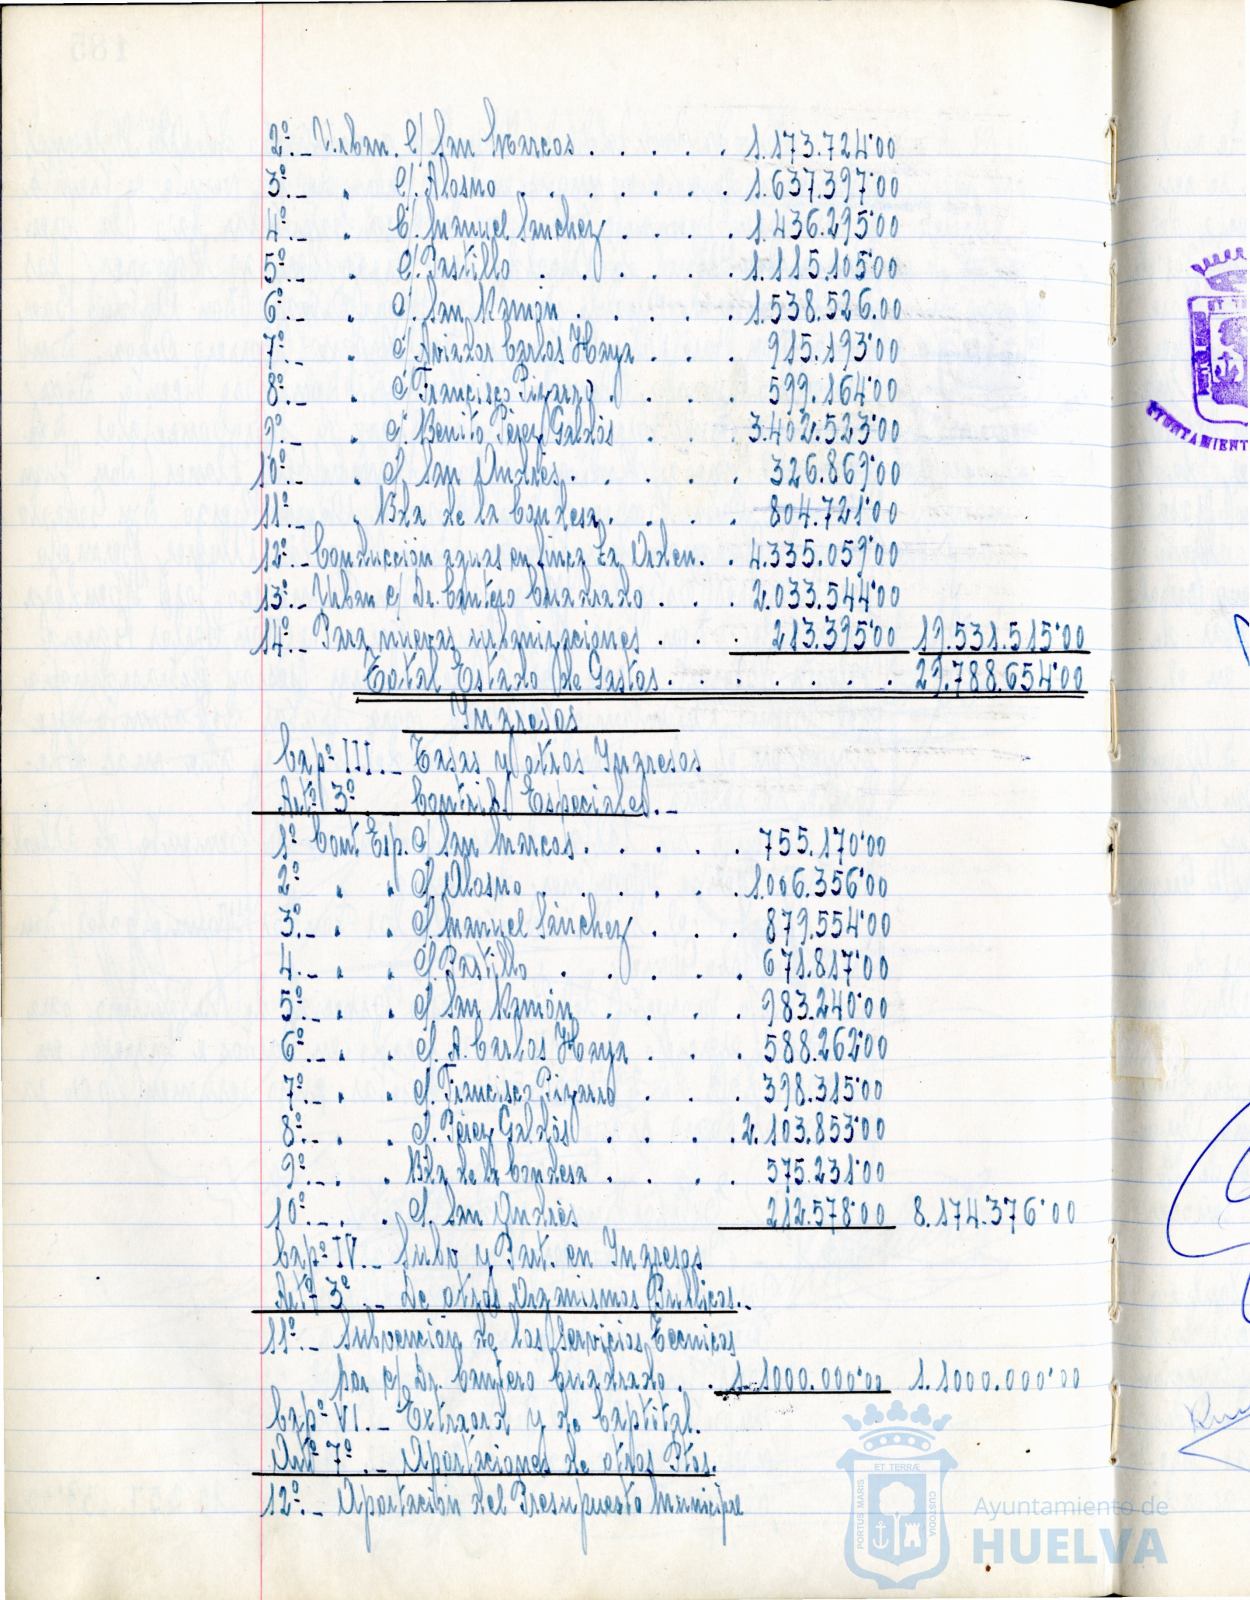 2º.- Urban. C/ San Marcos . . . . . 1.173.724'00
3º.- " C/. Alosno . . . . . . 1.637.397'00
4º.- " C/. Manuel Sanchez . . . . 1.436.295'00
5º.- " C/. Pastillo . . . . . . 1.115.105'00
6º.- " C/. San Ramón . . . . . 1.538.526.00
7º.- " C/ Aviador Carlos Haya . . . 915.193'00
8º.- " C/ Francisco Pizarro . . . . 599.164'00
9º.- " C/. Benito Pérez Galdós . . . 3.402.523'00
10º.- " C/. San Andrés . . . . . 326.869'00
11º.- " Bda de la Condesa . . . . 804.721'00
12º.- Conducción aguas en finca La Orden. . 4.335.059'00
13º.- Urban c/ Dr. Cantero Cuadrado . . . 2.033.544'00
14º.- Para nuevas urbanizaciones . . . 213.395'00 19.531.515'00
Total Estado de Gastos . . . . . . . 29.788.654'00
Ingresos
Capº III.- Tasas y otros Ingresos
Artº 3º Contrib. Especiales.-
1º Cont. Esp. C/ San Marcos . . . . . 755.170'00
2º " " C/. Alosno . . . . . . 1.006.356'00
3º.- " " C/. Manuel Sánchez . . . 879.554'00
4.- " " C/. Pastillo . . . . . 671.817'00
5º.- " " C/. San Ramón . . . . 983.240'00
6º.- " " C/. A. Carlos Haya . . . 588.262'00
7º.- " " C/. Francisco Pizarro . . . 398.315'00
8º.- " " C/. Pérez Galdós . . . . 2.103.853'00
9º.- " " Bda de la Condesa . . . . 575.231'00
10º.- " " C/. San Andrés 212.578'00 8.174.376'00
Capº IV.- Subv y Part. en Ingresos
Artº 3º.- De otros Organismos Públicos.-
11º.- Subvención de los Servicios Tecnicos
por c/ Dr. Cantero Cuadrado . . 1.1000.000'00 1.1000.000'00
Capº VI.- Extraord y de Captital.
Artº 7º.- Aportaciones de otros Ptos.
12º.- Aportación del Presupuesto Municipal
ET TERRÆ
PORTUS MARIS
CUSTODIA
Ayuntamiento de
HUELVA